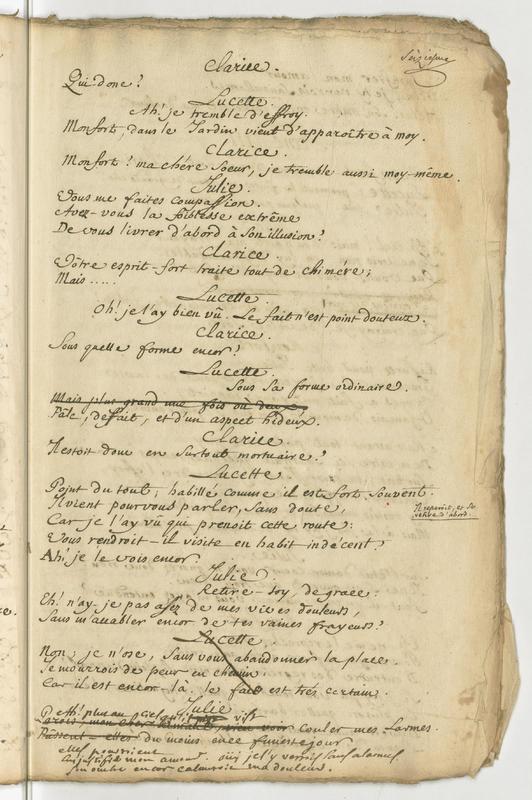 Seizieme
Clarice.
Qui donc?
Lucette.
Ah! je tremble d'effroy.
Monfort, dans le Jardin vient d'apparoître à moy.
Clarice.
Monfort! ma chére Soeur, je tremble aussi moy-même.
Julie.
Vous me faites compassion.
Avez-vous la foiblesse extrême
De vous livrer d'abord à son illusion?
Clarice.
Vôtre esprit-fort traite tout de chimére;
Mais.....
Lucette.
Oh! je l'ay bien vû. Le fait n'est point douteux.
Clarice.
Sous quelle forme encor?
Lucette.
Sous sa forme ordinaire.
Mais plus grand une fois ou deux
Pâle, défait, et d'un aspect hideux.
Clarice.
Il estoit donc en Surtout mortuaire?
Lucette.
Point du tout; habillé comme il est fort souvent.
Il vient pour vous parler, sans doute,
Car je l'ay vû qui prenoit cette route:
Vous rendroit-il visite en habit indécent?
Ah! je le vois encor
Il reparoît, et se
retire d'abord.
Julie
Retire-toy, de grace:
Eh! n'ay-je pas assez de mes vives douleurs,
Sans m'accabler encor de tes vaines frayeurs?
Lucette.
Non, je n'ose, sans vous abandonner la place.
Je mourrois de peur en chemin
Car il est encor là. le fait est trés certain.
Julie
Eh! plut au Ciel qu'il vist couler mes larmes.
du moins funeste jour
elles pourroient
mon amour. oui je l'y verrois sans alarmes
son ombre encor calmeroit ma douleur.